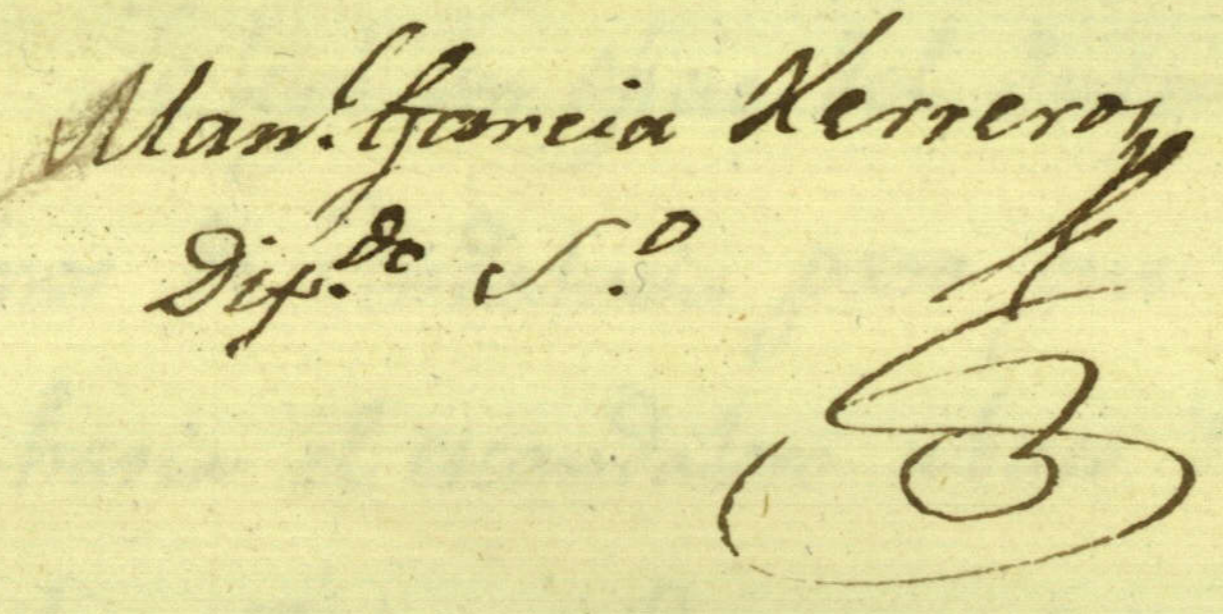 Man.l Garcia Herreros
Dip.do S.o